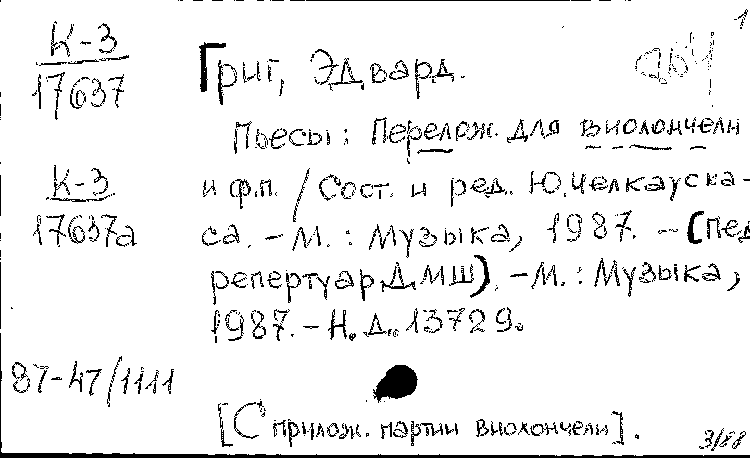 1
К-3
17637
Григ, Эдвард.
Пьесы: Перелож. для виолончели
К-3
17637а
и ф.п. / Сост. и ред. Ю.Челкауска-
са. - М.: Музыка, 1987. - (Пед
репертуар.Д.МШ). - М.: Музыка,
1987. - Н.Д. 13729.
87-47/1111
[С прилож. партии виолончели].
3/88